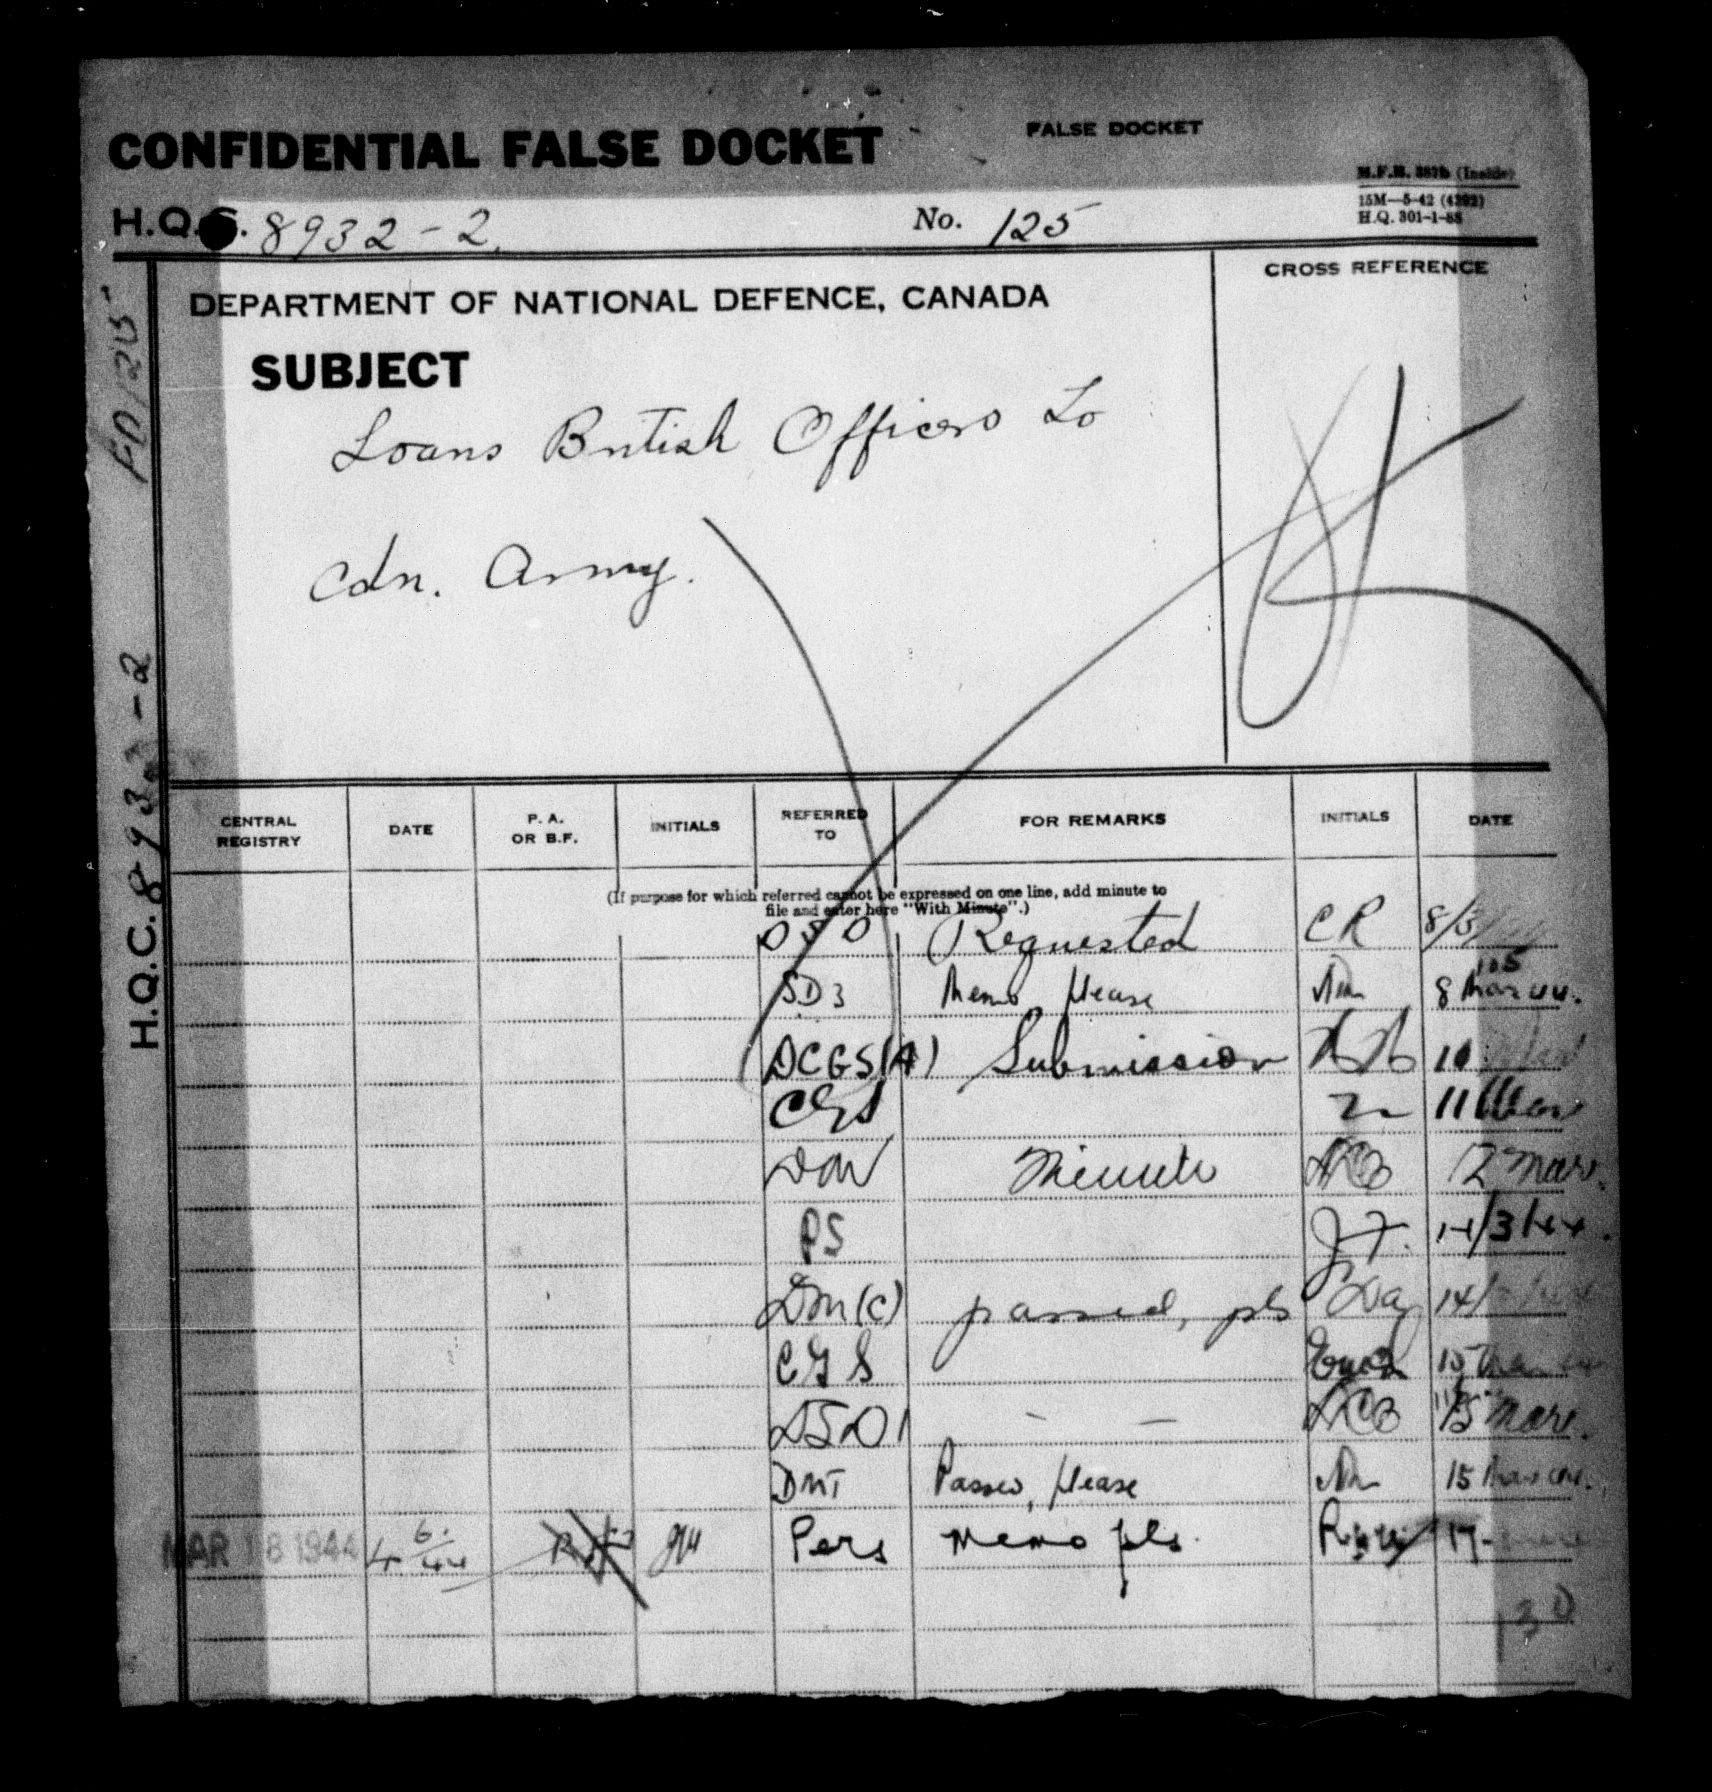 CONFIDENTIAL FALSE DOCKET
FALSE DOCKET
M.F.B. 887b (Inside)
15M—5-42 (4392)
H.Q. 301-1-88
H.Q. . 8932-2. No. 125
DEPARTMENT OF NATIONAL DEFENCE, CANADA
CROSS REFERENCE
SUBJECT
Loans British Officers to
Cdn. Army.
FD 125
H.Q.C. 8932-2
CENTRAL REGISTRY DATE P. A. OR B.F. INITIALS REFERRED TO FOR REMARKS INITIALS DATE
(If purpose for which referred cannot be expressed on one line, add minute to
file and enter here "With Minute".)
DSD Requested CR 8/3
SD3 Memo, please 8 Mar 44.
DCGS(A) Submission 10
CGS 11 Mar
Minute 12 Mar.
PS J.F. 14/3/44.
DM(C) passed, pls 14/
CGS 15
DSD1 - - ACB 15 Mar.
DMT Passed, please 15 Mar
MAR 18 1944 Pers memo pls. 17-